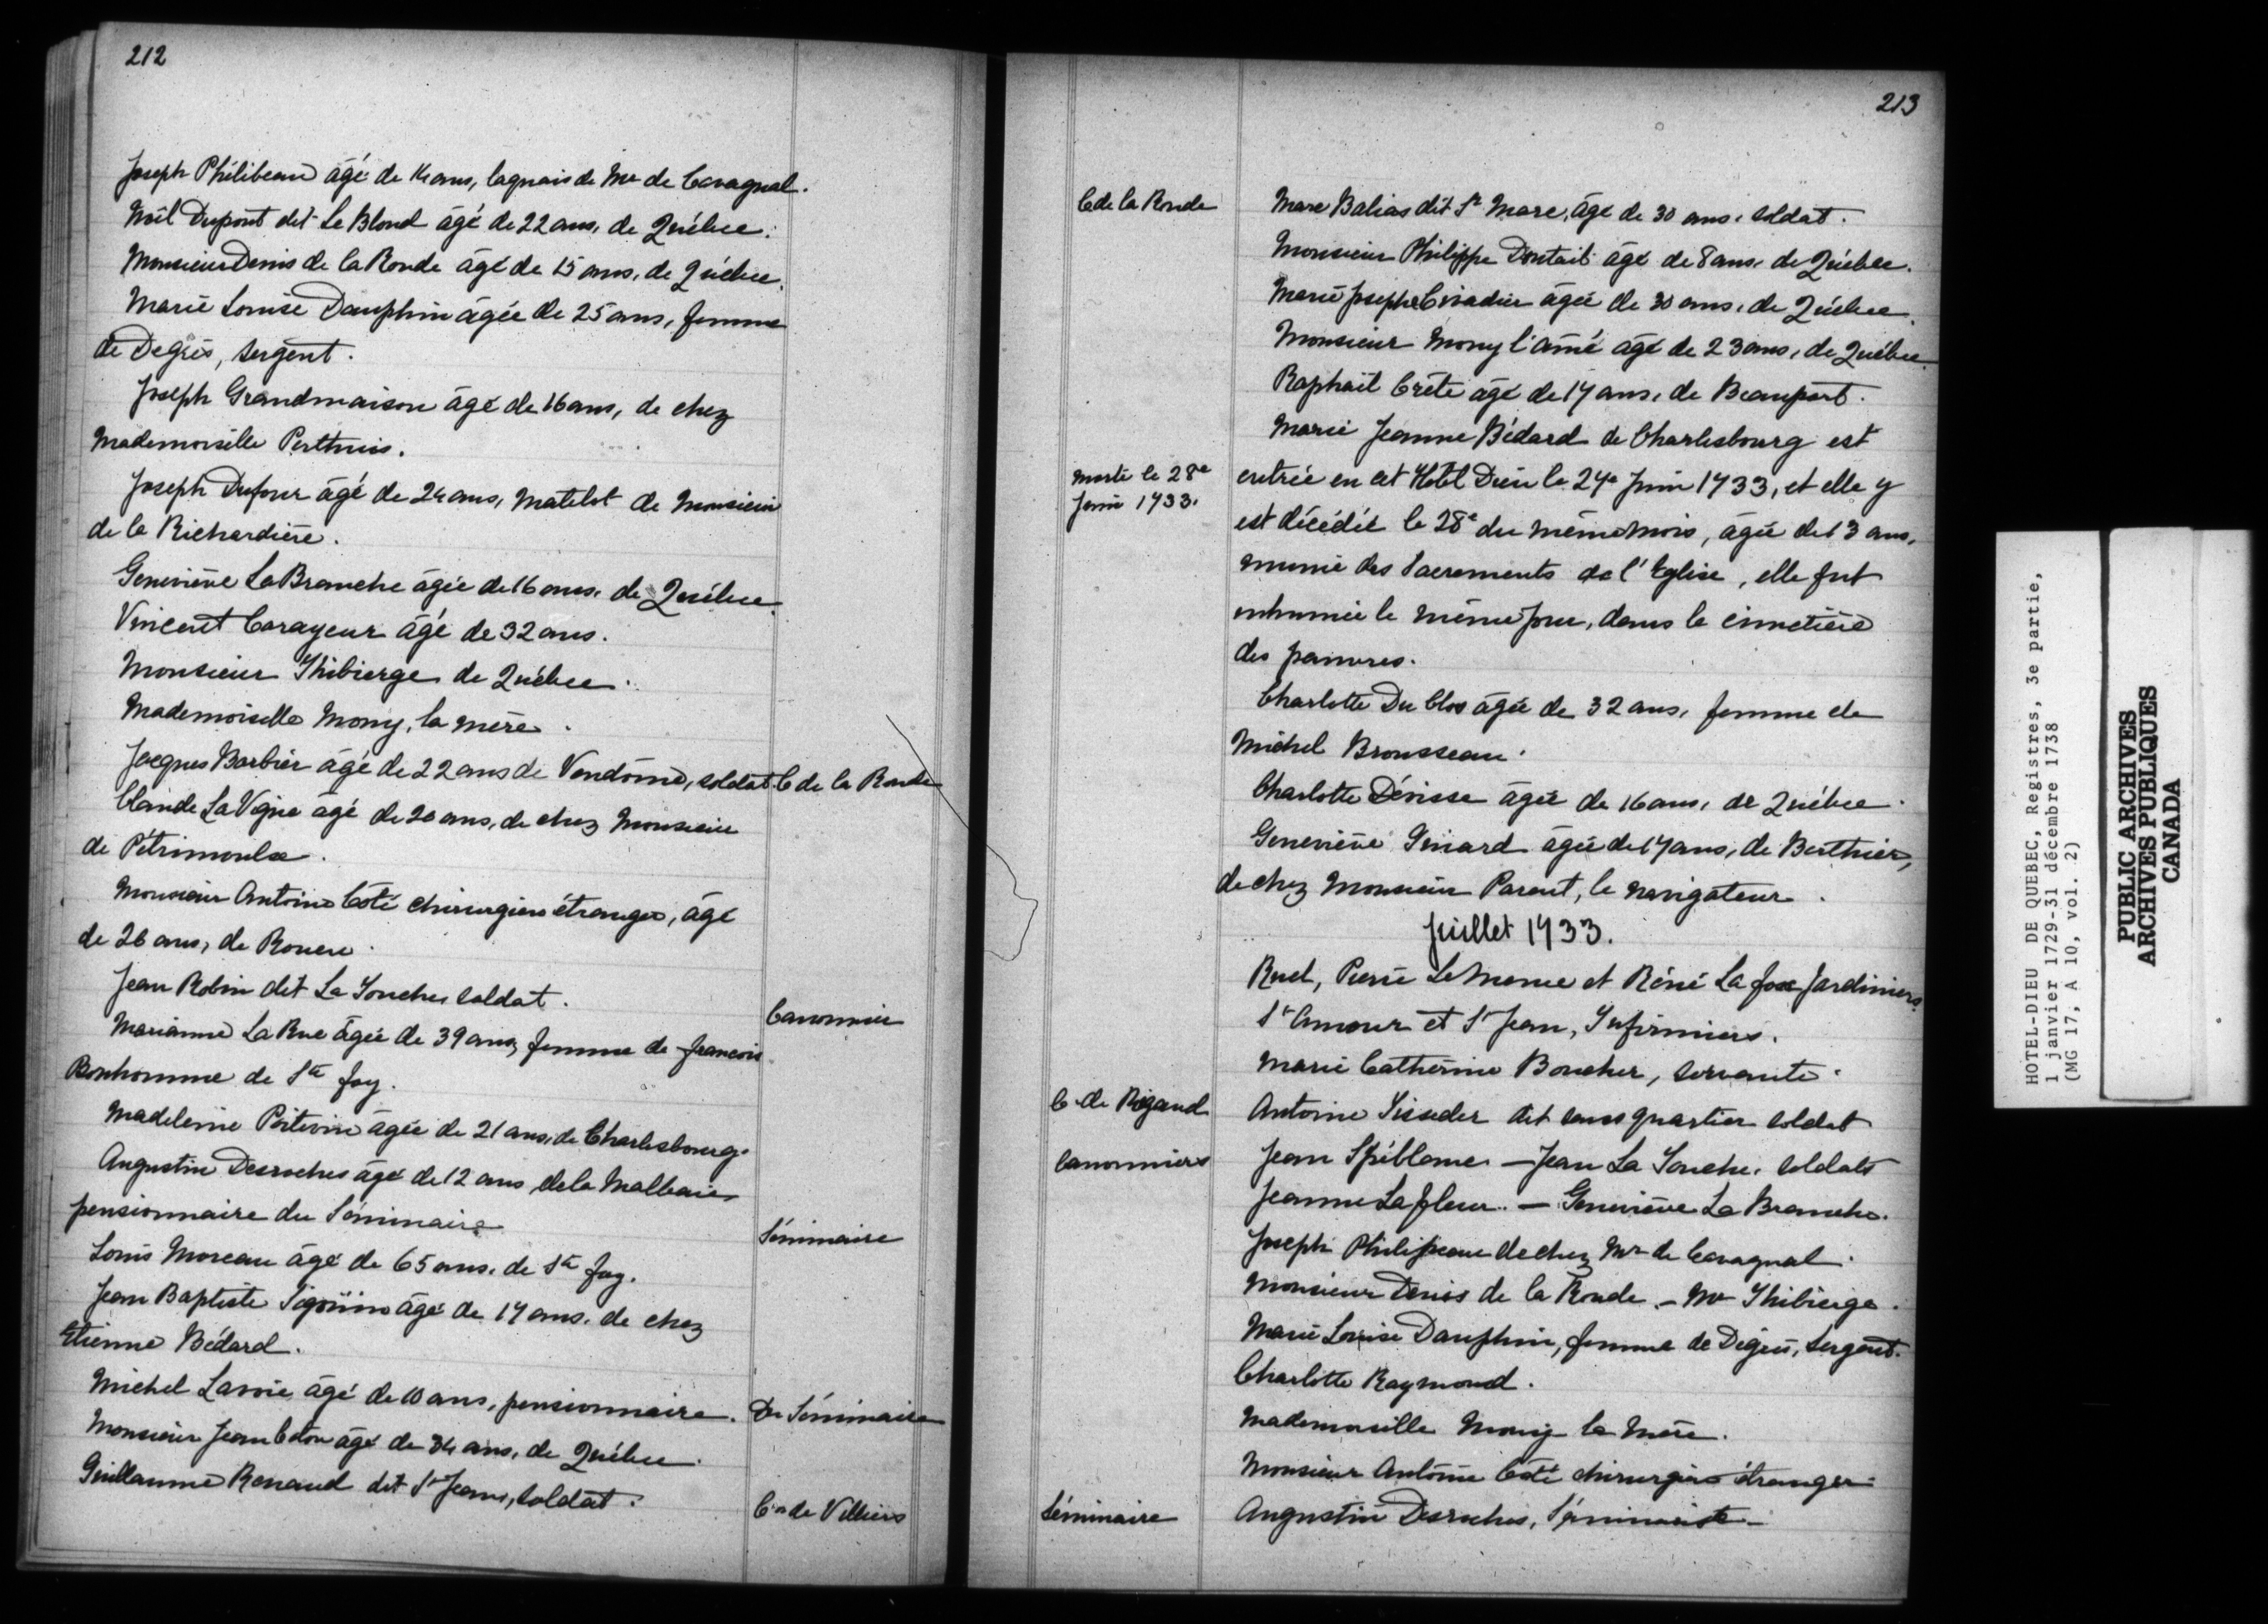 212
Joseph Philibeau âgé de 14 ans, laquais de Mr de Cavagnal.
Noël Dupont dit Le Blond âgé de 22 ans, de Québec.
Monsieur Denis de la Ronde âgé de 15 ans, de Québec.
Marie Louise Dauphin âgée de 25 ans, femme
de Degrés, sergent.
Joseph Grandmaison âgé de 16 ans, de chez
Mademoiselle Perthuis.
Joseph Dufour âgé de 24 ans, Matelot de Monsieur
de la Richardière.
Geneviève La Branche âgée de 16 ans, de Québec.
Vincent Carayeur âgé de 32 ans.
Monsieur Thibierge de Québec.
Mademoiselle Mony, la mère.
Jacques Barbier âgé de 22 ans de Vendôme, soldat. C de la Ronde
Claude La Vigne âgé de 20 ans, de chez Monsieur
de Pétrimoulx.
Monsieur Antoine Côté chirurgien étranger, âgé
de 26 ans, de Rouen.
Jean Robin dit La Souche, soldat. Canonnier
Marianne La Rue âgée de 39 ans, femme de François
Bonhomme de Ste Foy.
Madeleine Poitevin âgée de 21 ans, de Charlesbourg.
Augustin Desroches âgé de 12 ans, de la Malbaie,
pensionnaire du Séminaire Séminaire
Louis Moreau âgé de 65 ans, de Ste Foy.
Jean Baptiste âgé de 17 ans, de chez
Etienne Bédard.
Michel Lavoie âgé de 10 ans, pensionnaire. Du Séminaire
Monsieur Jean âgé de 34 ans, de Québec.
Guillaume Renaud dit St Jean, soldat. Cie de Villiers
213
C de la Ronde Marc Balias dit St Marc, âgé de 30 ans, soldat.
Monsieur Philippe Dontail âgé de 8 ans, de Québec.
Marie Josephe âgée de 30 ans, de Québec.
Monsieur Mony l'aîné âgé de 23 ans, de Québec.
Raphaël Crête âgé de 17 ans, de Beauport.
Marie Jeanne Bédard de Charlesbourg est
morte le 28e entrée en cet Hôtel Dieu le 24e Juin 1733, et elle y
Juin 1733. est décédée le 28e du même mois, âgée de 13 ans,
munie des Sacrements de l'Eglise, elle fut
inhumée le même jour, dans le cimetière
des pauvres.
Charlotte Du Clos âgée de 32 ans, femme de
Michel Brousseau.
Charlotte Dérisse âgée de 16 ans, de Québec.
Geneviève âgée de 17 ans, de Berthier,
de chez Monsieur Parent, le navigateur.
Juillet 1733.
Ruel, Pierre Le Moine et Réné La foxe Jardiniers.
St Amour et St Jean, Infirmiers.
Marie Catherine Boucher, servante.
C. de Rigaud Antoine Tisseder dit sans quartier soldat
Canonniers Jean Spiblome — Jean La Souche, soldats
Jeanne Lafleur. — Geneviève La Branche.
Joseph Philipeau de chez Mr de Cavagnal.
Monsieur Denis de la Ronde. — Mr Thibierge.
Marie Louise Dauphin, femme de Degrés, Sergent.
Charlotte Raymond.
Mademoiselle Mony la Mère.
Monsieur Antoine Côté chirurgien étranger
Séminaire Augustin Desroches, Séminariste —
HOTEL-DIEU DE QUEBEC, Registres, 3e partie,
1 janvier 1729-31 décembre 1738
(MG 17, A 10, vol. 2)
PUBLIC ARCHIVES
ARCHIVES PUBLIQUES
CANADA